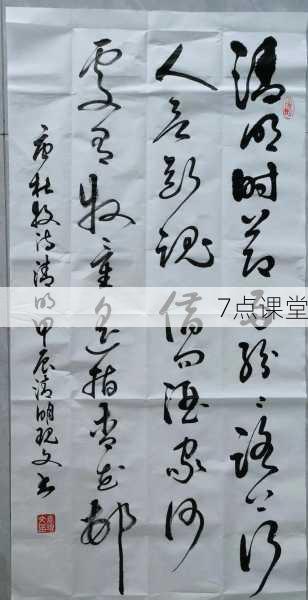 清明时节雨纷〻路上行
人欲断魂借问酒家何
处有牧童遥指杏花邨
唐杜牧诗清明甲辰清明现文书
7点课堂